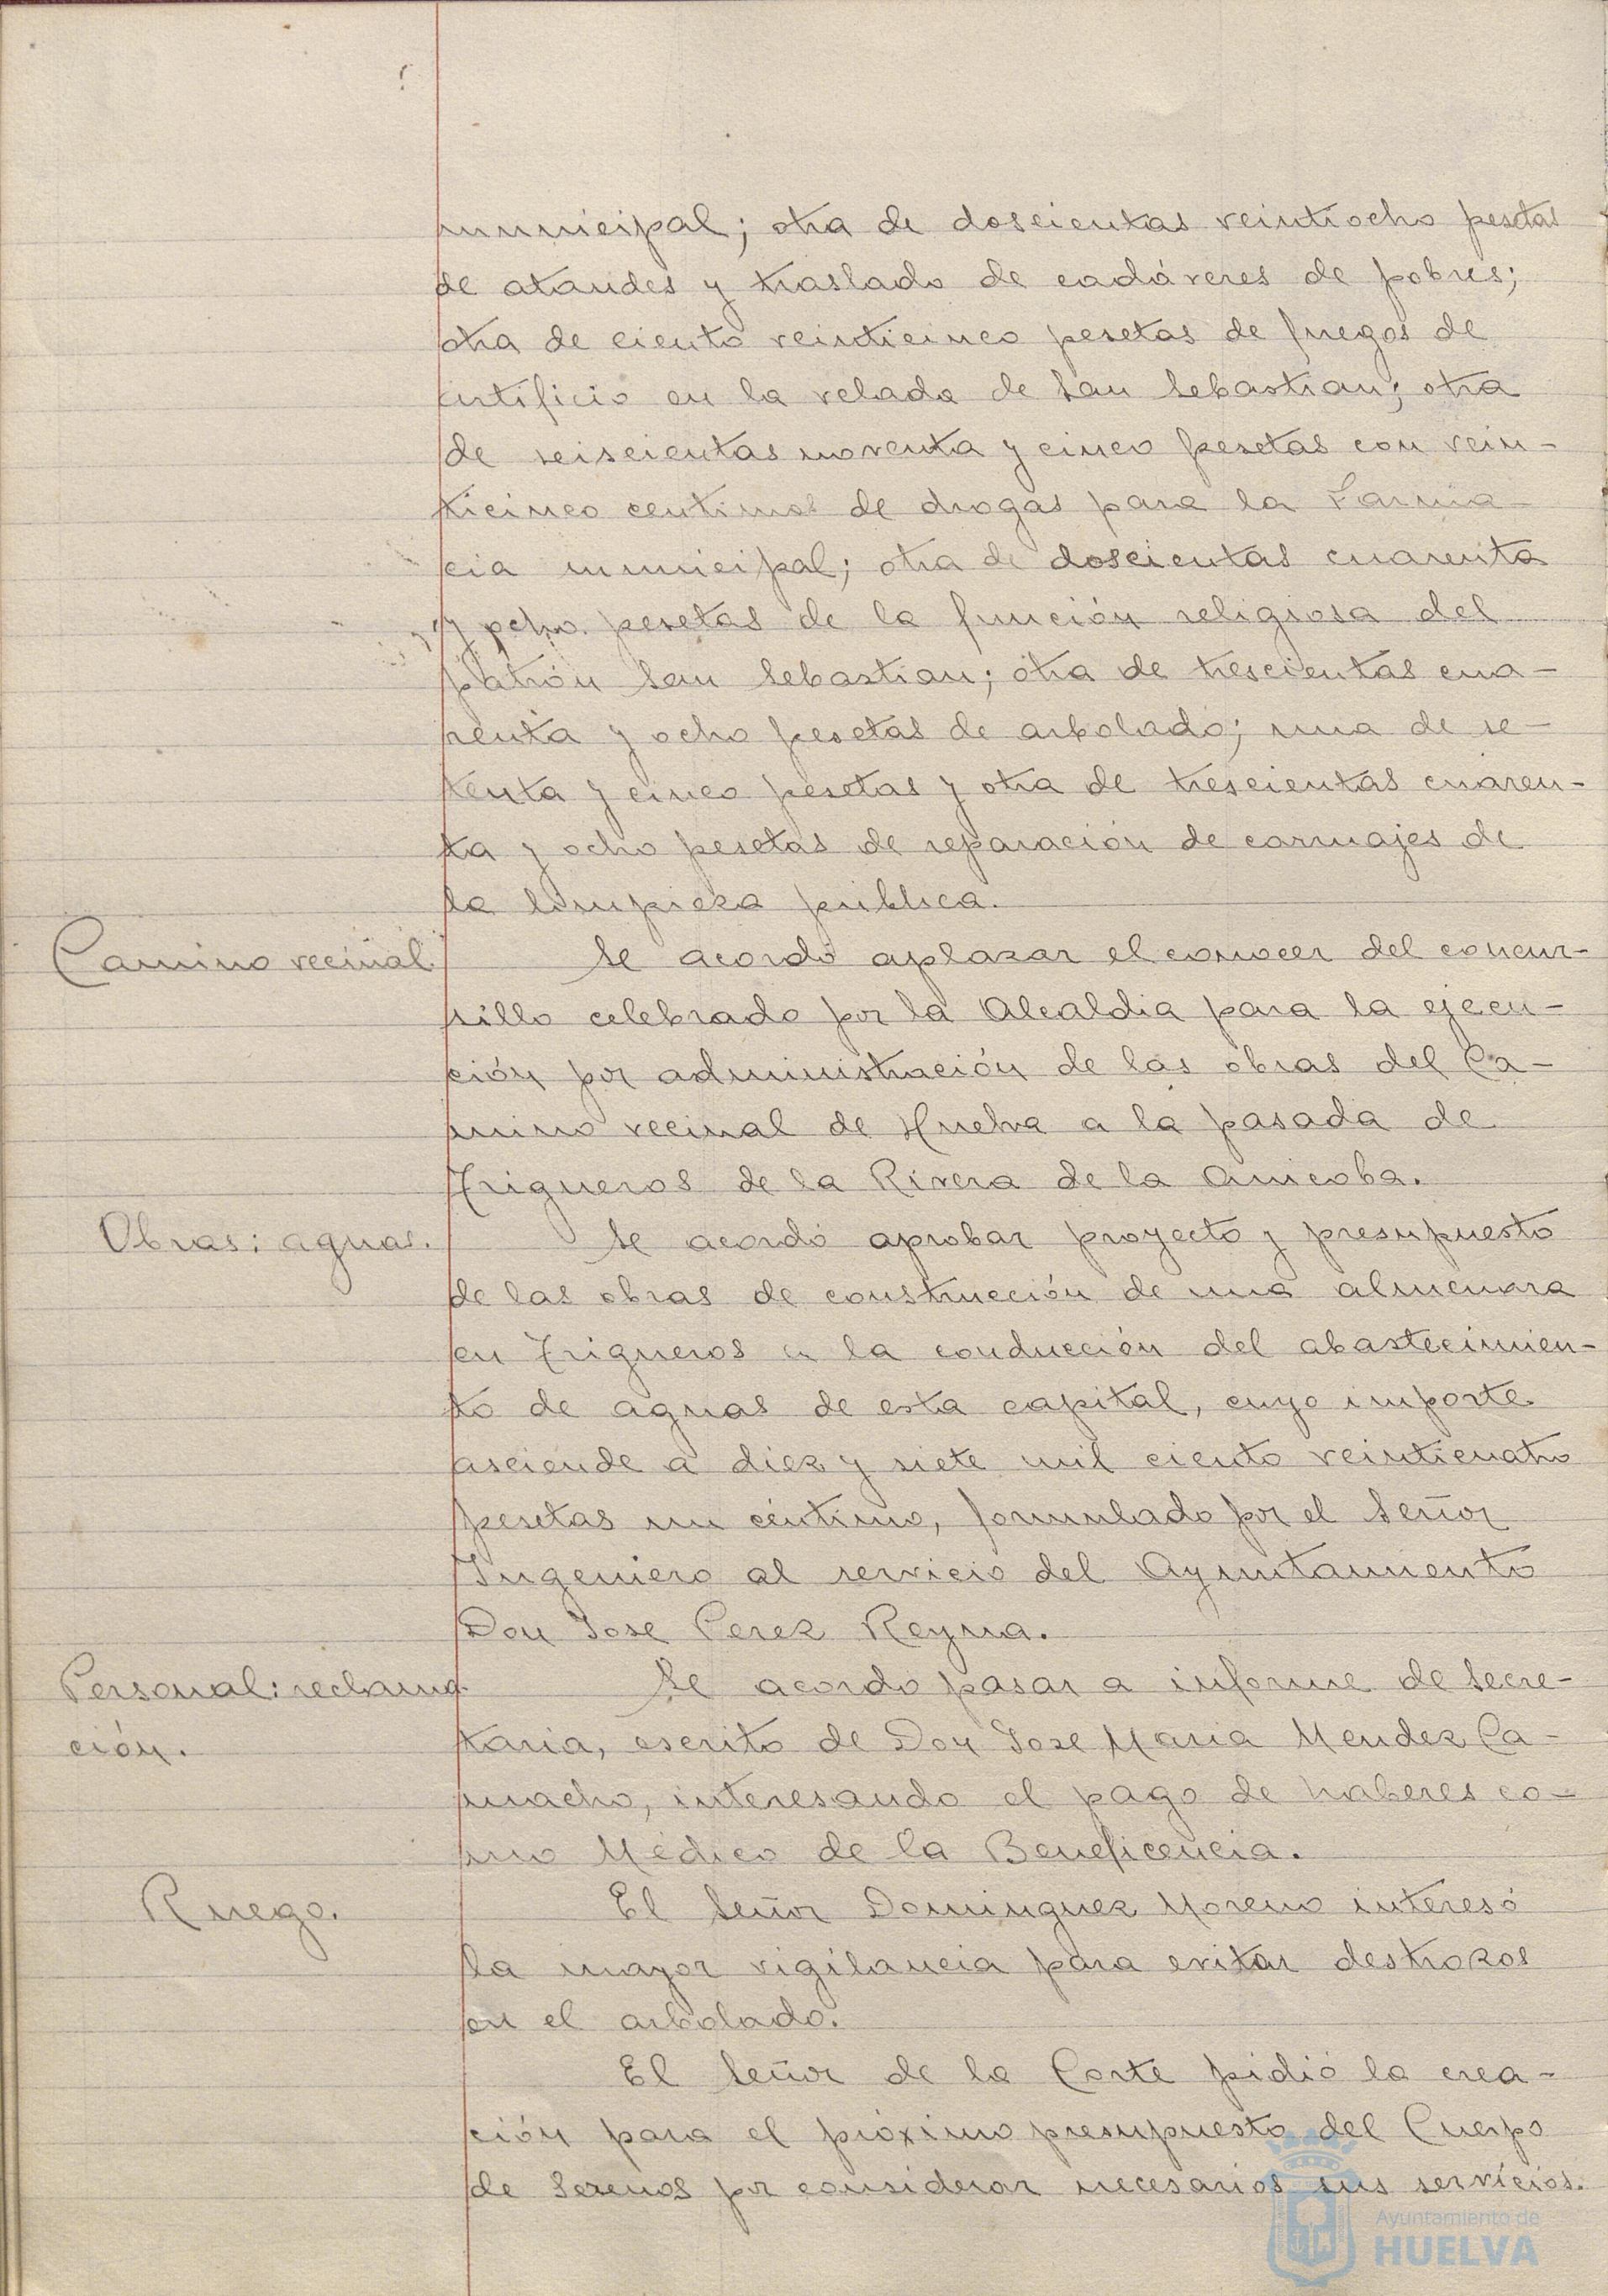 municipal; otra de doscientas veintiocho pesetas
de ataudes y traslado de cadáveres de pobres;
otra de ciento veinticinco pesetas de fuegos de
artificio en la velada de San Sebastian; otra
de seiscientas noventa y cinco pesetas con vein-
ticinco centimos de drogas para la Farma-
cia municipal; otra de doscientas cuarenta
y ocho pesetas de la función religiosa del
patrón San Sebastian; otra de trescientas cua-
renta y ocho pesetas de arbolado; una de se-
tenta y cinco pesetas y otra de trescientas cuaren-
ta y ocho pesetas de reparación de carruajes de
la limpieza publica.
Camino vecinal.
Se acordó aplazar el conocer del concur-
sillo celebrado por la Alcaldia para la ejecu-
ción por administración de las obras del Ca-
mino vecinal de Huelva a la pasada de
Trigueros de la Rivera de la Anicoba.
Obras: aguas.
Se acordó aprobar proyecto y presupuesto
de las obras de construcción de una almenara
en Trigueros a la conducción del abastecimien-
to de aguas de esta capital, cuyo importe
asciende a diez y siete mil ciento veinticuatro
pesetas un céntimo, formulado por el Señor
Ingeniero al servicio del Ayuntamiento
Don Jose Perez Reyna.
Personal: reclama-
ción.
Se acordo pasar a informe de Secre-
taria, escrito de Don Jose Maria Mendez Ca-
macho, interesando el pago de haberes co-
mo Médico de la Beneficencia.
Ruego.
El Señor Dominguez Moreno interesó
la mayor vigilancia para evitar destrozos
en el arbolado.
El Señor de la Corte pidió la crea-
ción para el próximo presupuesto del Cuerpo
de Serenos por considerar necesarios sus servicios.
Ayuntamiento de
HUELVA